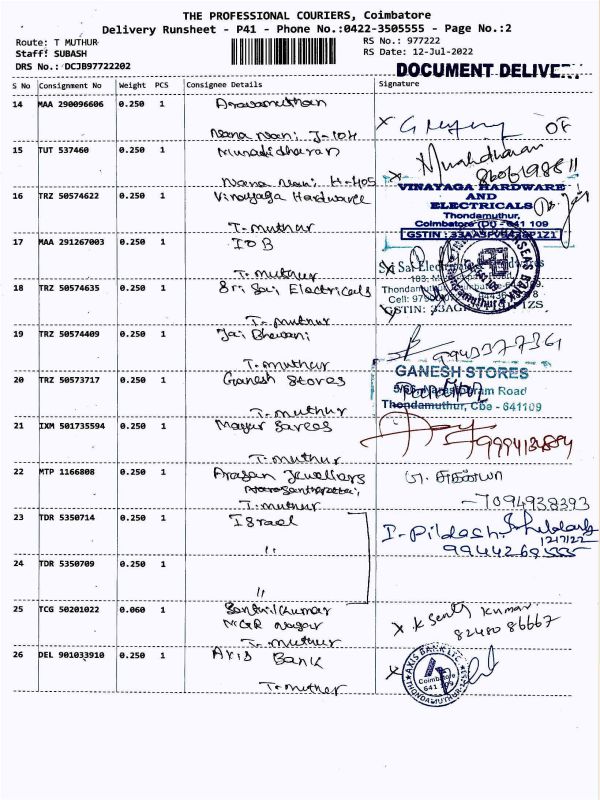 THE PROFESSIONAL COURIERS, Coimbatore
Delivery Runsheet - P41 - Phone No.:0422-3505555 - Page No.:2
Route: T MUTHUR
Staff: SUBASH
DRS No.: DCJB97722202
RS No.: 977222
RS Date: 12-Jul-2022
DOCUMENT DELIVE
S No Consignment No Weight PCS Consignee Details Signature
14 MAA 290096606 0.250 1 Aravamuthan
Nana Nani J-104
OF
15 TUT 537460 0.250 1 Muralidharan
Nana Nani H-405
Muralidharan
16 TRZ 50574622 0.250 1 Vinayaga Hardware
T. muthur
VINAYAGA HARDWARE
AND
ELECTRICALS
Thondamuthur,
Coimbatore (Dt) - 641 109
17 MAA 291267003 0.250 1 IOB
T. muthur
18 TRZ 50574635 0.250 1 Sri Sai Electricals
T. muthur
19 TRZ 50574409 0.250 1 Jai Bhavani
T. muthur
9943377361
20 TRZ 50573717 0.250 1 Ganesh Stores
T. muthur
GANESH STORES
Road
Thondamuthur, Cbe - 641109
21 IXM 501735594 0.250 1 Mayur Sarees
T. muthur
22 MTP 1166808 0.250 1 Arasan Jewellars
T. muthur
சுகன்யா
7094938393
23 TDR 5350714 0.250 1 Israel
"
12/7/22
24 TDR 5350709 0.250 1
"
25 TCG 50201022 0.060 1 Senthilkumar
MGR Nagar
T. muthur
X K Senthil Kumar
82480 86667
26 DEL 901033910 0.250 1 Axis Bank
T. muthur
AXIS BANK LTD
Coimbatore
641 109
THONDAMUTHUR